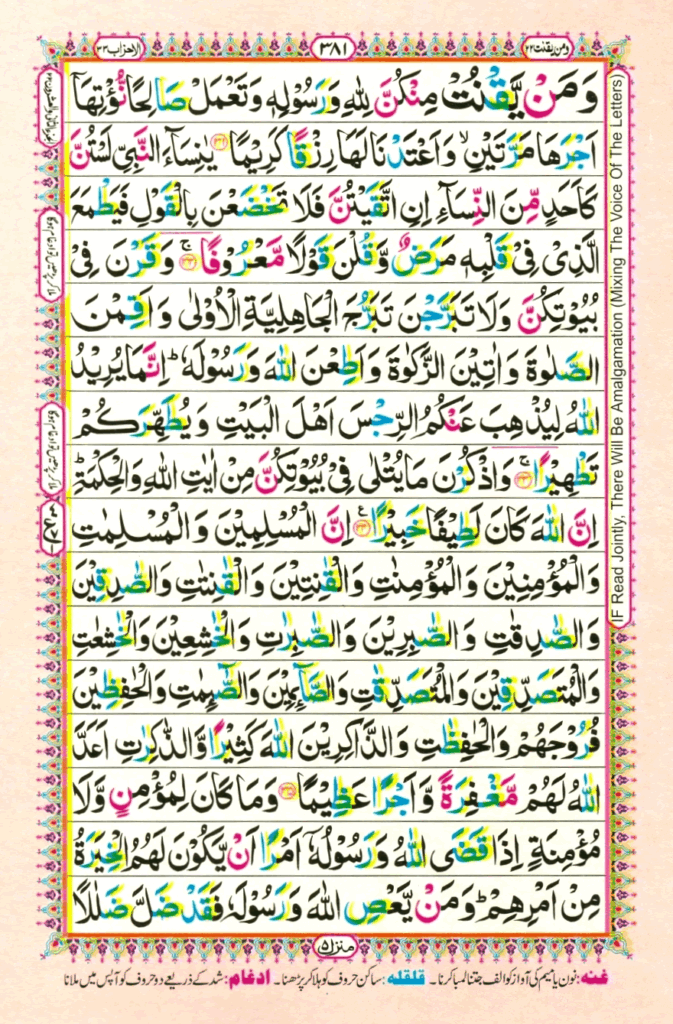 الاحزاب ٣٣
٣٨١
ومن يقنت ٢٢
وَمَنْ يَّقْنُتْ مِنْكُنَّ لِلّٰهِ وَرَسُوْلِهٖ وَتَعْمَلْ صَالِحًا نُّؤْتِهَآ
اَجْرَهَا مَرَّتَيْنِ ۙ وَاَعْتَدْنَا لَهَا رِزْقًا كَرِيْمًا ۝٣١ يٰنِسَآءَ النَّبِيِّ لَسْتُنَّ
كَاَحَدٍ مِّنَ النِّسَآءِ اِنِ اتَّقَيْتُنَّ فَلَا تَخْضَعْنَ بِالْقَوْلِ فَيَطْمَعَ
الَّذِيْ فِيْ قَلْبِهٖ مَرَضٌ وَّقُلْنَ قَوْلًا مَّعْرُوْفًا ۝٣٢ۚ وَقَرْنَ فِيْ
بُيُوْتِكُنَّ وَلَا تَبَرَّجْنَ تَبَرُّجَ الْجَاهِلِيَّةِ الْاُوْلٰى وَاَقِمْنَ
الصَّلٰوةَ وَاٰتِيْنَ الزَّكٰوةَ وَاَطِعْنَ اللّٰهَ وَرَسُوْلَهٗ ؕ اِنَّمَا يُرِيْدُ
اللّٰهُ لِيُذْهِبَ عَنْكُمُ الرِّجْسَ اَهْلَ الْبَيْتِ وَيُطَهِّرَكُمْ
تَطْهِيْرًا ۝٣٣ۚ وَاذْكُرْنَ مَا يُتْلٰى فِيْ بُيُوْتِكُنَّ مِنْ اٰيٰتِ اللّٰهِ وَالْحِكْمَةِ ؕ
اِنَّ اللّٰهَ كَانَ لَطِيْفًا خَبِيْرًا ۝٣٤ۧ اِنَّ الْمُسْلِمِيْنَ وَالْمُسْلِمٰتِ
وَالْمُؤْمِنِيْنَ وَالْمُؤْمِنٰتِ وَالْقٰنِتِيْنَ وَالْقٰنِتٰتِ وَالصّٰدِقِيْنَ
وَالصّٰدِقٰتِ وَالصّٰبِرِيْنَ وَالصّٰبِرٰتِ وَالْخٰشِعِيْنَ وَالْخٰشِعٰتِ
وَالْمُتَصَدِّقِيْنَ وَالْمُتَصَدِّقٰتِ وَالصَّآئِمِيْنَ وَالصّٰٓئِمٰتِ وَالْحٰفِظِيْنَ
فُرُوْجَهُمْ وَالْحٰفِظٰتِ وَالذَّاكِرِيْنَ اللّٰهَ كَثِيْرًا وَّالذّٰكِرٰتِ اَعَدَّ
اللّٰهُ لَهُمْ مَّغْفِرَةً وَّاَجْرًا عَظِيْمًا ۝٣٥ وَمَا كَانَ لِمُؤْمِنٍ وَّلَا
مُؤْمِنَةٍ اِذَا قَضَى اللّٰهُ وَرَسُوْلُهٗٓ اَمْرًا اَنْ يَّكُوْنَ لَهُمُ الْخِيَرَةُ
مِنْ اَمْرِهِمْ ؕ وَمَنْ يَّعْصِ اللّٰهَ وَرَسُوْلَهٗ فَقَدْ ضَلَّ ضَلٰلًا
منزل ۵
غنه : نون یا میم کی آواز کو الف جتنا لمبا کرنا ۔ قلقله : ساکن حروف کو ہلا کر پڑھنا ۔ ادغام : شد کے ذریعے دو حروف کو آپس میں ملانا
IF Read Jointly, There Will Be Amalgamation (Mixing The Voice Of The Letters)